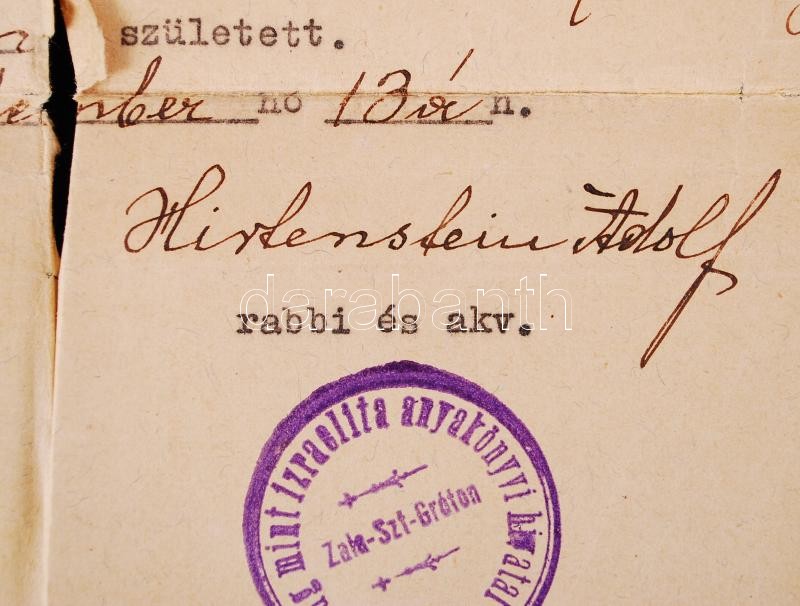 született.
ember hó 13án.
Hirtenstein Adolf
rabbi és akv.
mint izraelita anyakönyvi hivatal
Zala-Szt-Gróton
darabanth